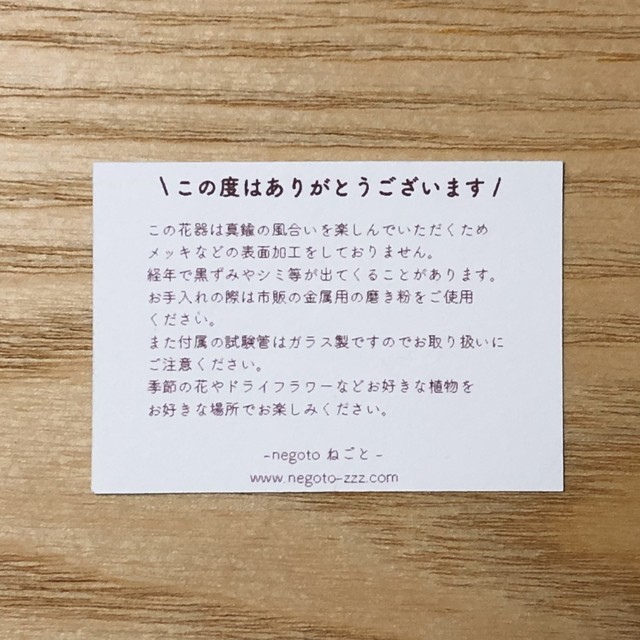 \ この度はありがとうございます /
この花器は真鍮の風合いを楽しんでいただくため
メッキなどの表面加工をしておりません。
経年で黒ずみやシミ等が出てくることがあります。
お手入れの際は市販の金属用の磨き粉をご使用
ください。
また付属の試験管はガラス製ですのでお取り扱いに
ご注意ください。
季節の花やドライフラワーなどお好きな植物を
お好きな場所でお楽しみください。
-negoto ねごと-
www.negoto-zzz.com